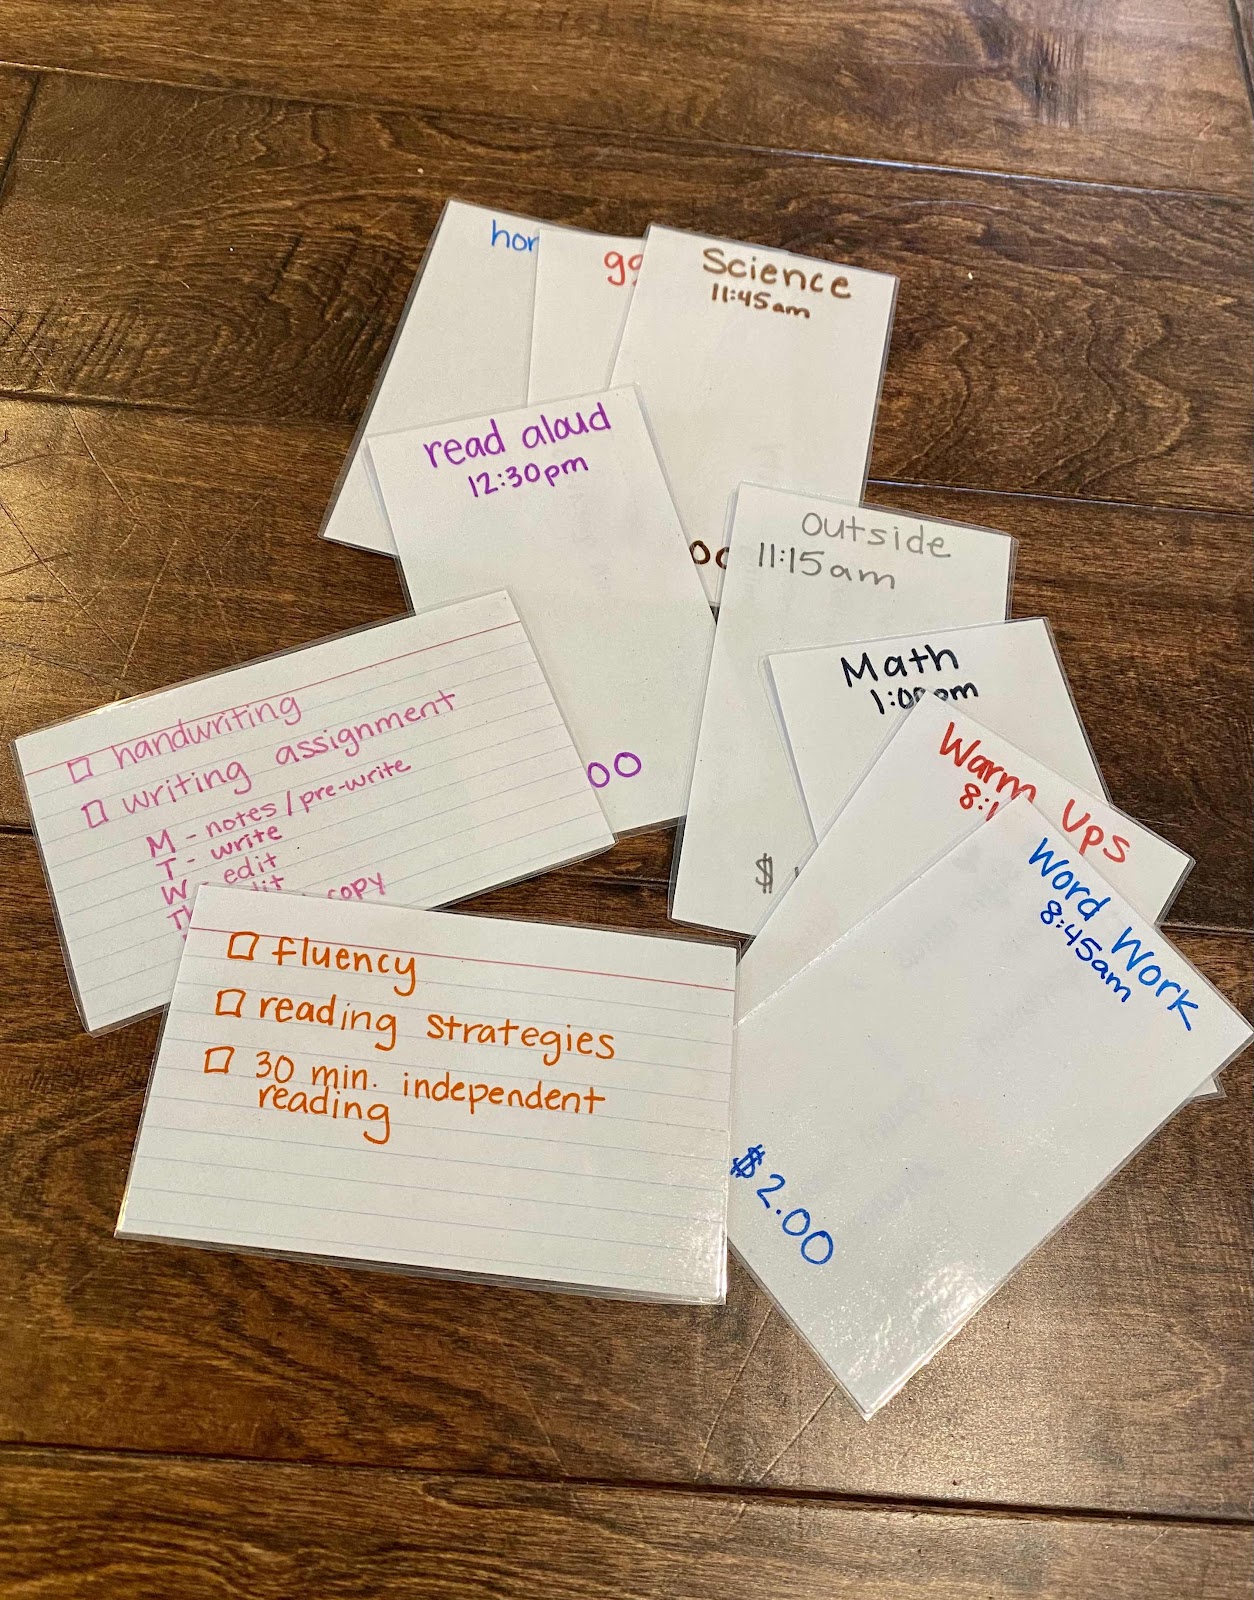 Science
11:45am
read aloud
12:30pm
00
outside
11:15am
$
Math
Warm Ups
Word Work
8:45am
$2.00
handwriting
writing assignment
M - notes / pre-write
T - write
W - edit
copy
fluency
reading strategies
30 min. independent
reading